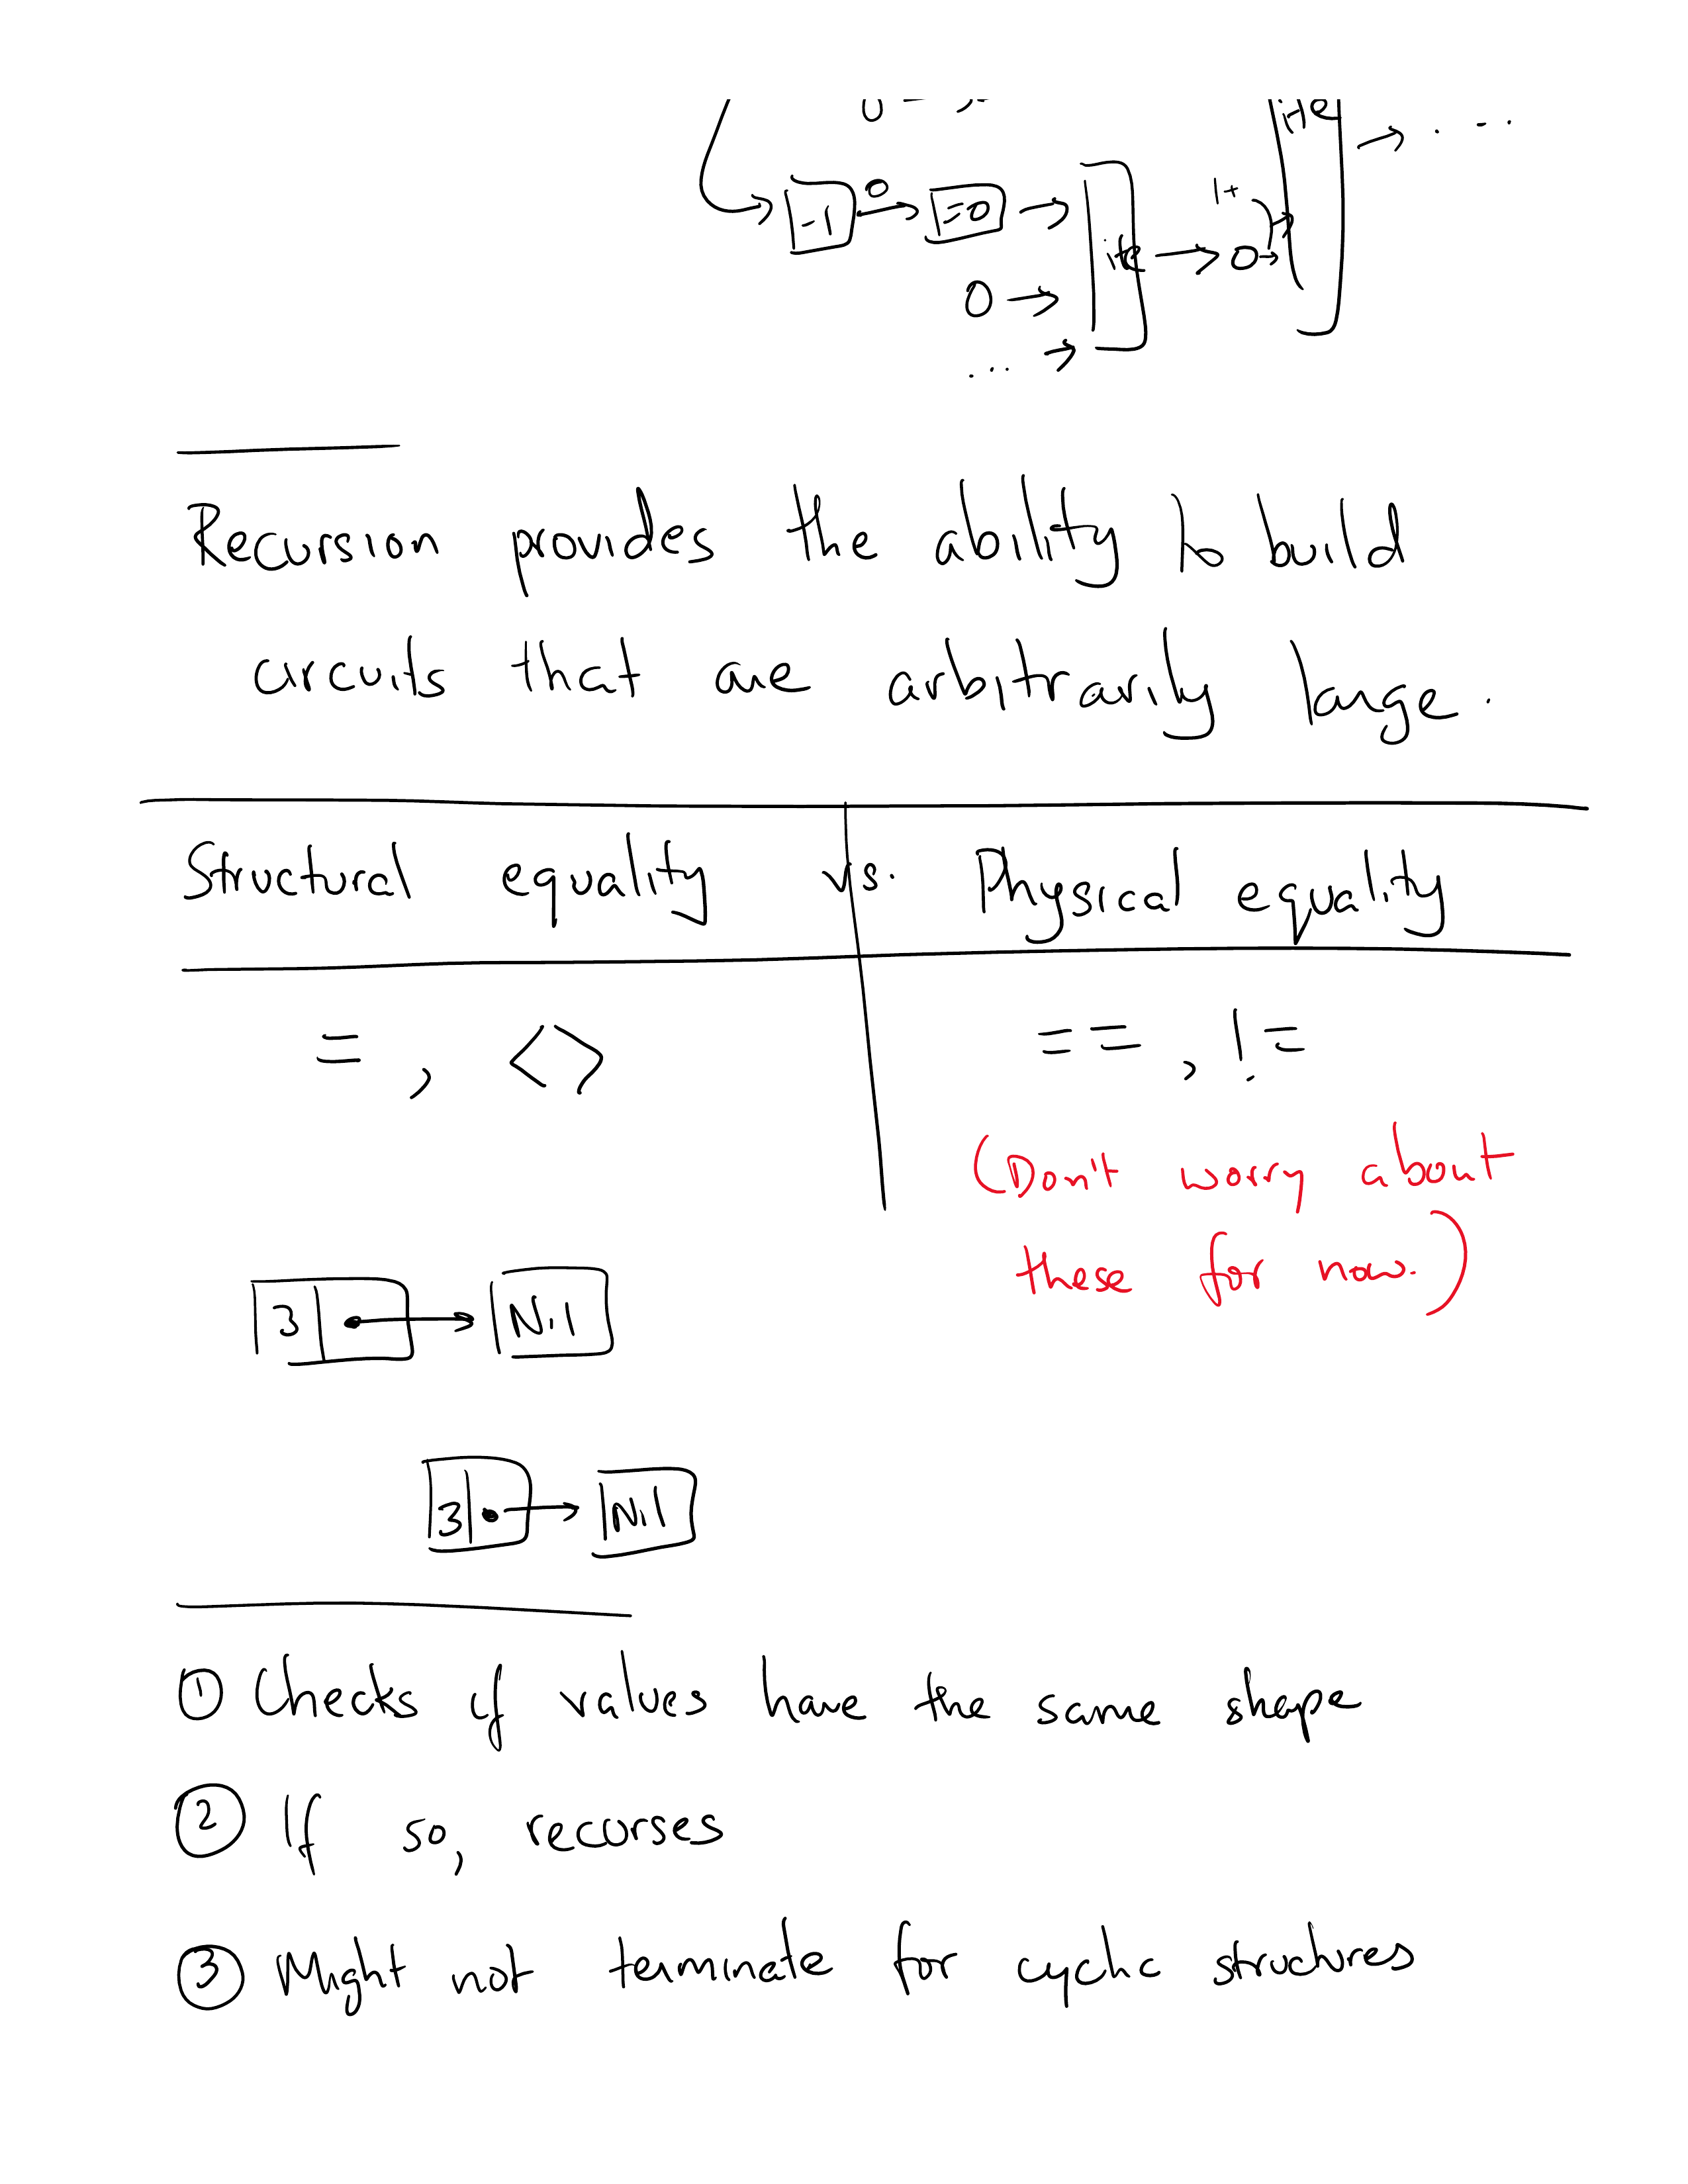 -1 0 =0
1+
ite 0
0
...
Recursion provides the ability to build
circuits that are arbitrarily large.
Structural equality vs. Physical equality
=, <> ==, !=
(Don't worry about
these for now.)
3 Nil
3 Nil
① Checks if values have the same shape
② If so, recurses
③ Might not terminate for cyclic structures